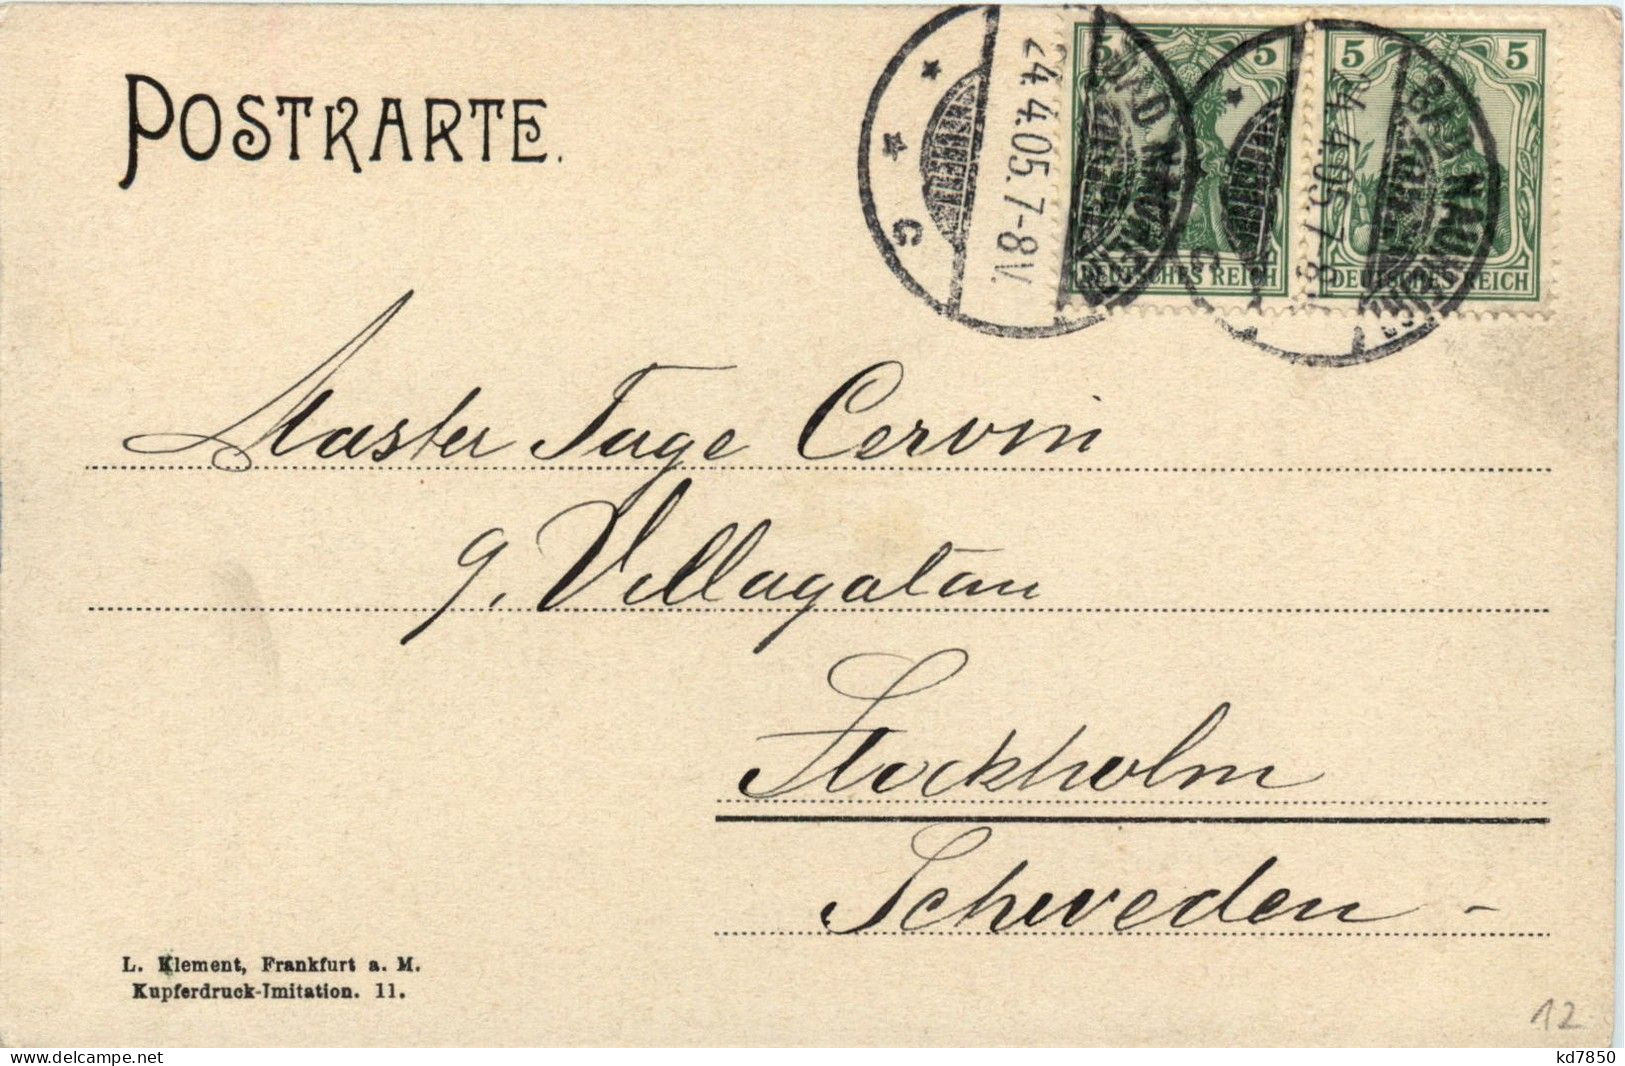 POSTKARTE.
24.4.05.7-8V.
BAD NAUHEIM
C
5 5
DEUTSCHES REICH
5 5
DEUTSCHES REICH
Master Tage Cervin
9, Villagatan
Stockholm
Schweden -
L. Klement, Frankfurt a. M.
Kupferdruck-Imitation. 11.
12
delcampe.net
kd7850